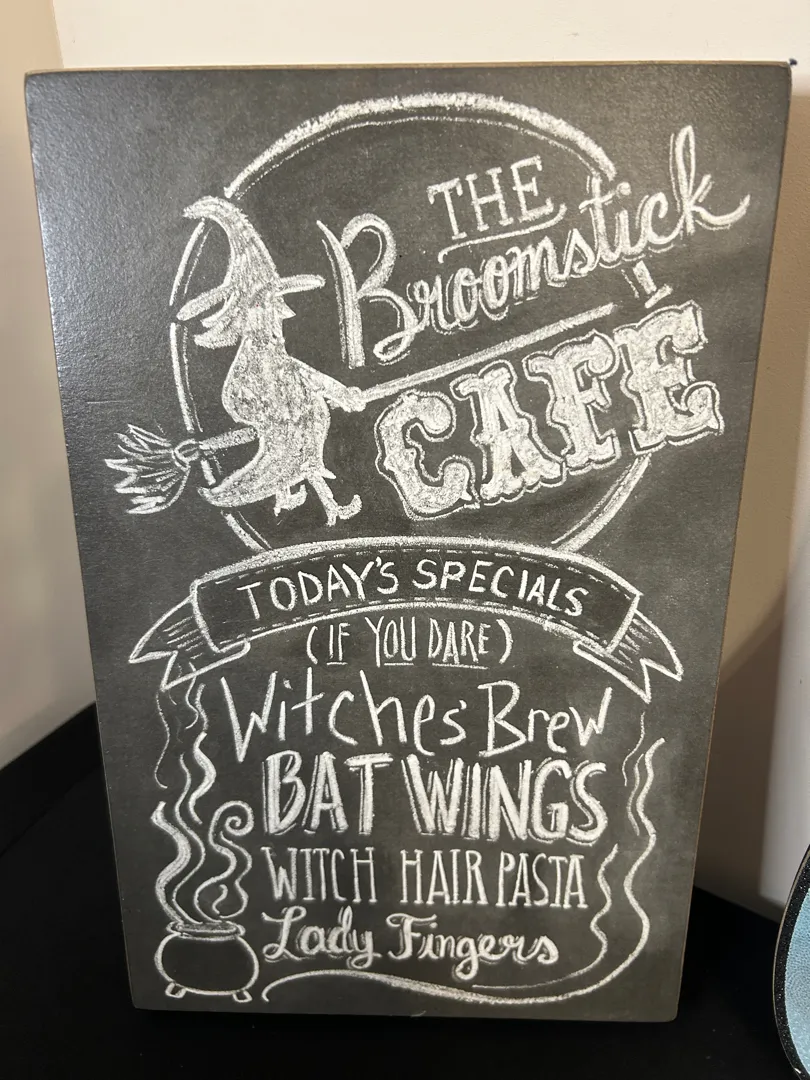 THE
Broomstick
CAFÉ
TODAY'S SPECIALS
(IF YOU DARE)
Witches' Brew
BAT WINGS
WITCH HAIR PASTA
Lady Fingers